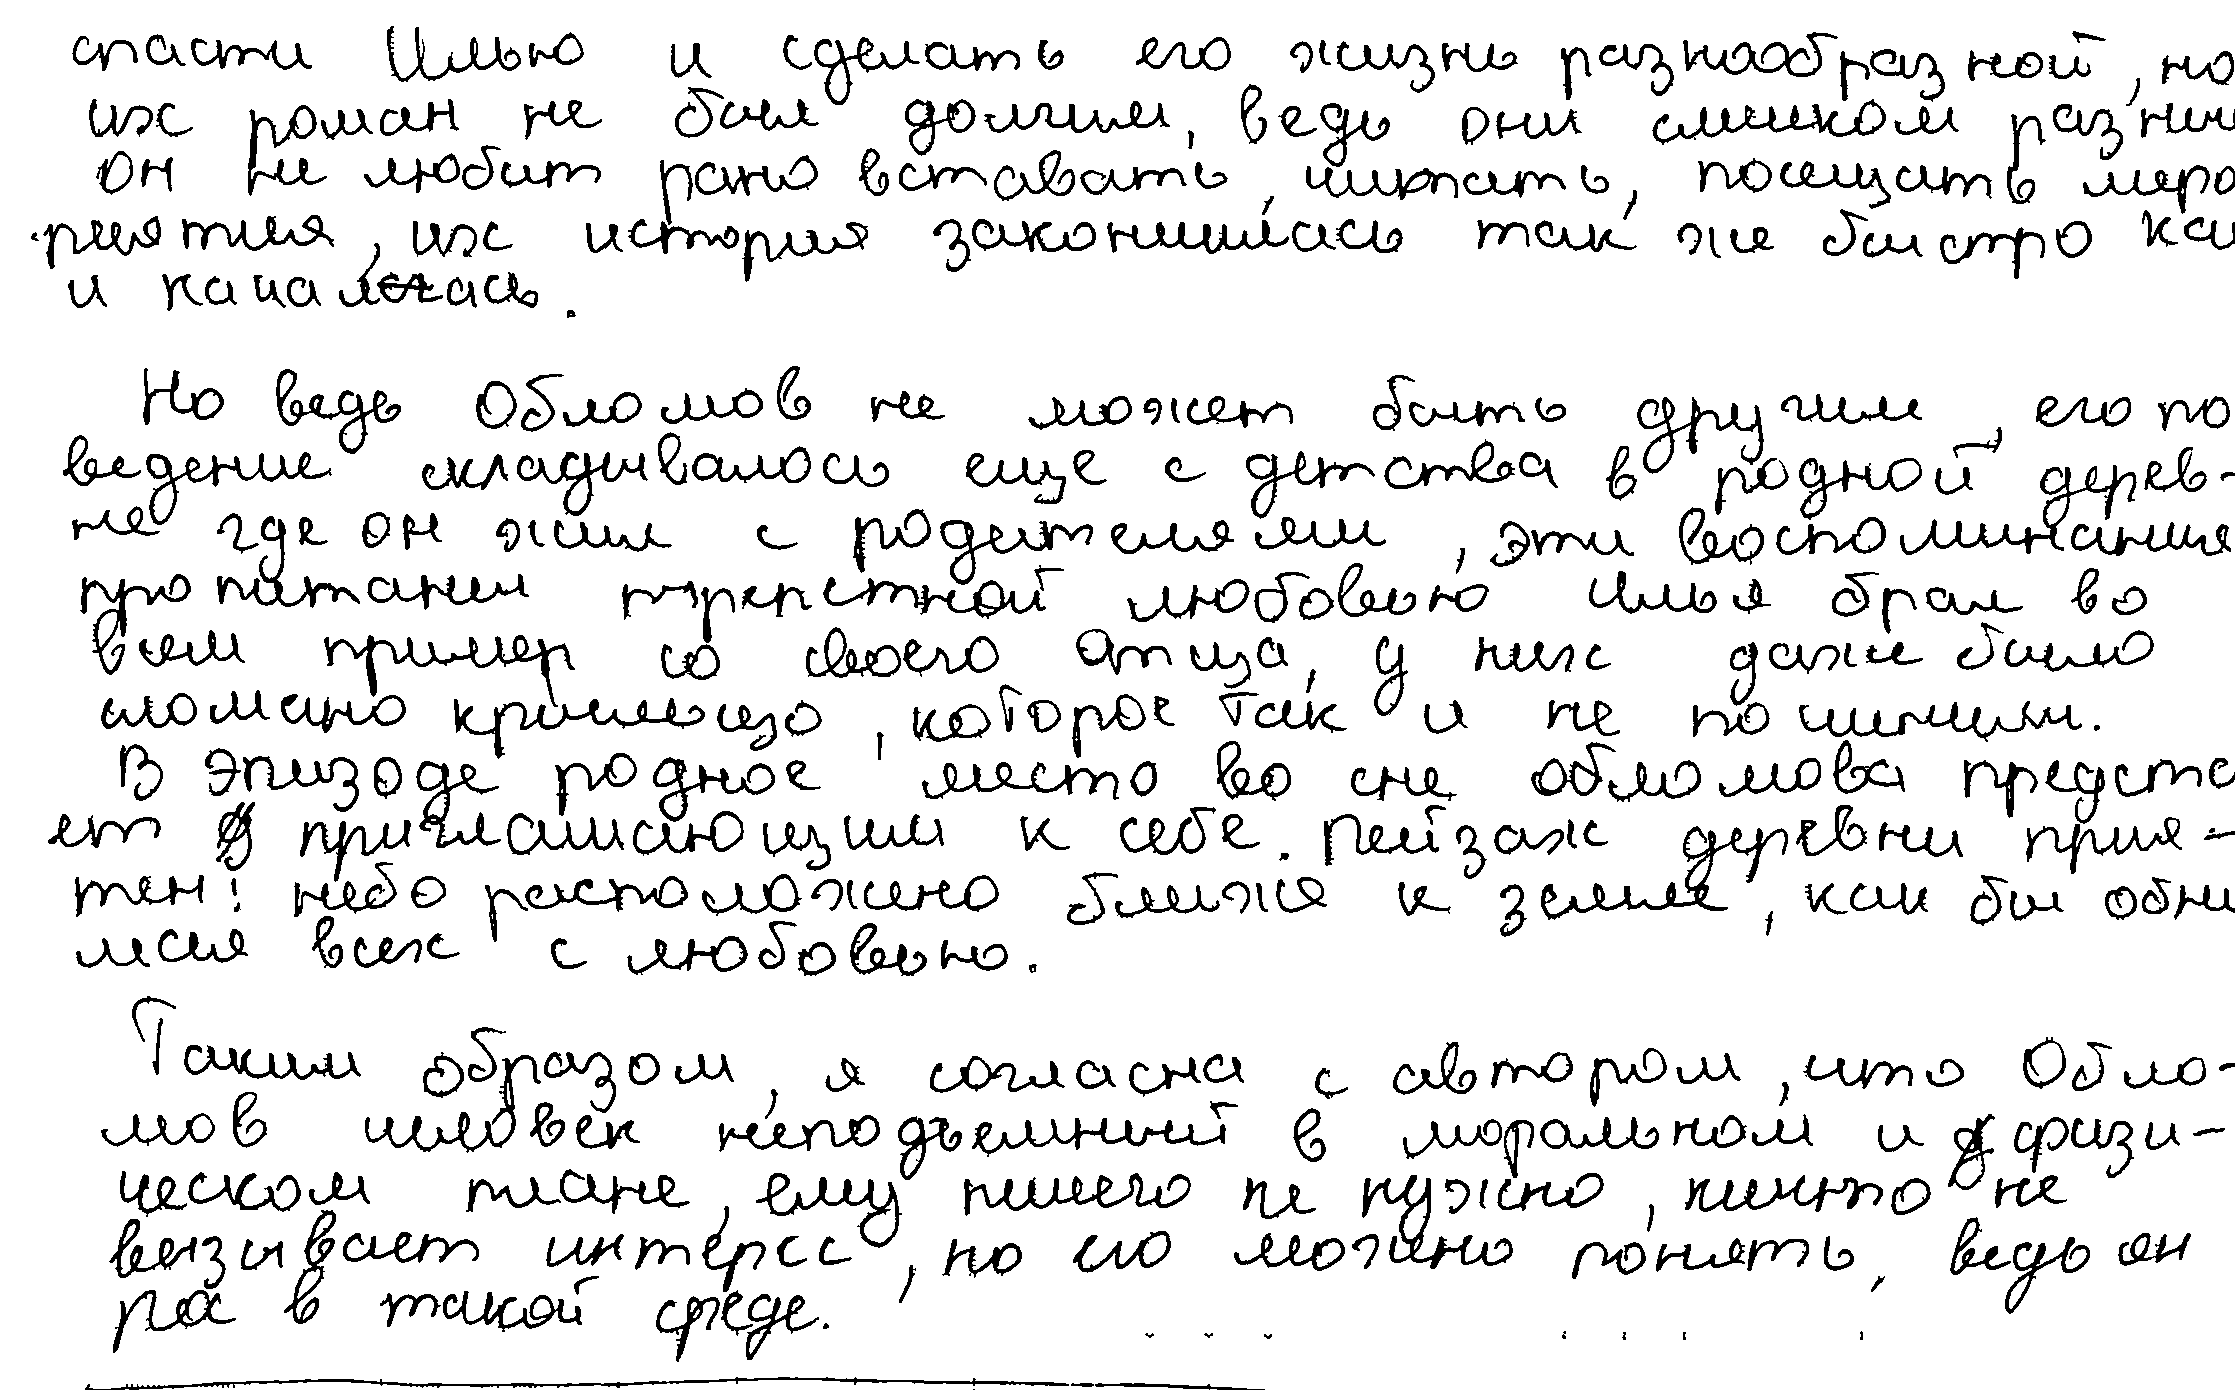 спасти Илью и сделать его жизнь разнообразной, но
их роман не был долгим, ведь они слишком разные
он не любит рано вставать, читать, посещать меро
приятия, их история закончилась так же быстро ка
и началась.
Но ведь Обломов не может быть другим, его по
ведение складывалось еще с детства в родной дерев-
не где он жил с родителями, эти воспоминания
пропитаны трепетной любовью Илья брал во
всем пример со своего отца, у них даже было
сломано крыльцо, которое так и не починили.
В эпизоде родное место во сне обломова предста
ет приглашающим к себе. Пейзаж деревни прия-
тен: небо расположено ближе к земле, как бы обни
мая всех с любовью.
Таким образом, я согласна с автором, что Обло-
мов человек неподъемный в моральном и физи-
ческом плане, ему ничего не нужно, ничто не
вызывает интерес, но его можно понять, ведь он
рос в такой среде.